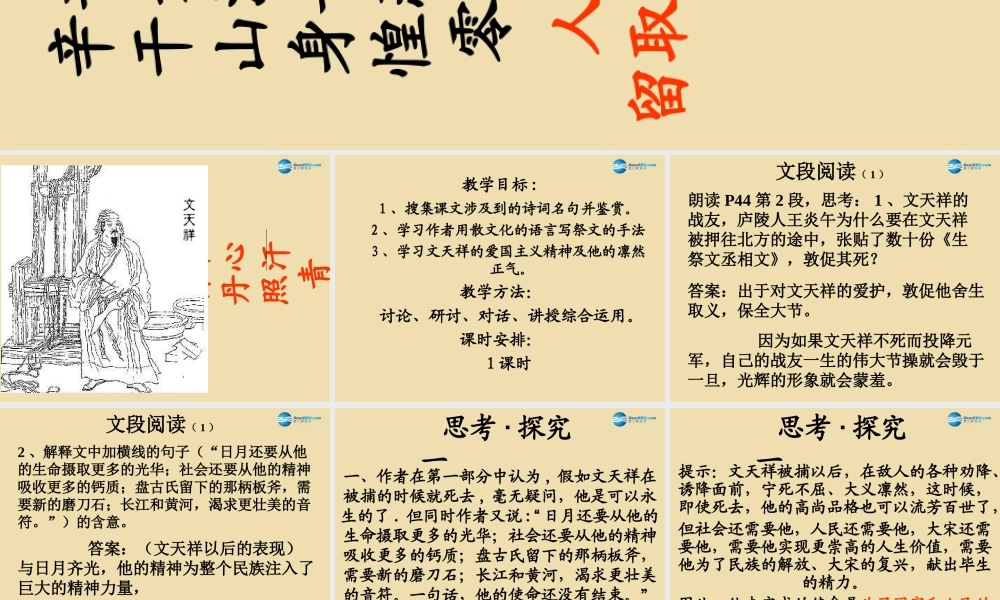 辛
干
山
身
惶
零
人
取
留
文天祥
丹心
照汗
青
教学目标：
1、搜集课文涉及到的诗词名句并鉴赏。
2、学习作者用散文化的语言写祭文的手法
3、学习文天祥的爱国主义精神及他的凛然
正气。
教学方法：
讨论、研讨、对话、讲授综合运用。
课时安排：
1课时
文段阅读（1）
朗读 P44 第 2 段，思考： 1 、文天祥的
战友，庐陵人王炎午为什么要在文天祥
被押往北方的途中，张贴了数十份《生
祭文丞相文》，敦促其死？
答案：出于对文天祥的爱护，敦促他舍生
取义，保全大节。
因为如果文天祥不死而投降元
军，自己的战友一生的伟大节操就会毁于
一旦，光辉的形象就会蒙羞。
文段阅读（1）
2 、解释文中加横线的句子（“日月还要从他
的生命摄取更多的光华；社会还要从他的精神
吸收更多的钙质；盘古氏留下的那柄板斧，需
要新的磨刀石；长江和黄河，渴求更壮美的音
符。”）的含意。
答案：（文天祥以后的表现）
与日月齐光，他的精神为整个民族注入了
巨大的精神力量，
思考·探究
一
一、作者在第一部分中认为，假如文天祥在
被捕的时候就死去，毫无疑问，他是可以永
生的了．但同时作者又说：“日月还要从他的
生命摄取更多的光华；社会还要从他的精神
吸收更多的钙质；盘古氏留下的那柄板斧，
需要新的磨刀石；长江和黄河，渴求更壮美
的音符。一句话，他的使命还没有结束。”
思考·探究
一
提示：文天祥被捕以后，在敌人的各种劝降、
诱降面前，宁死不屈、大义凛然，这时候，
即使死去，他的高尚品格也可以流芳百世了，
但社会还需要他，人民还需要他，大宋还需
要他，需要他实现更崇高的人生价值，需要
他为了民族的解放、大宋的复兴，献出毕生
的精力。